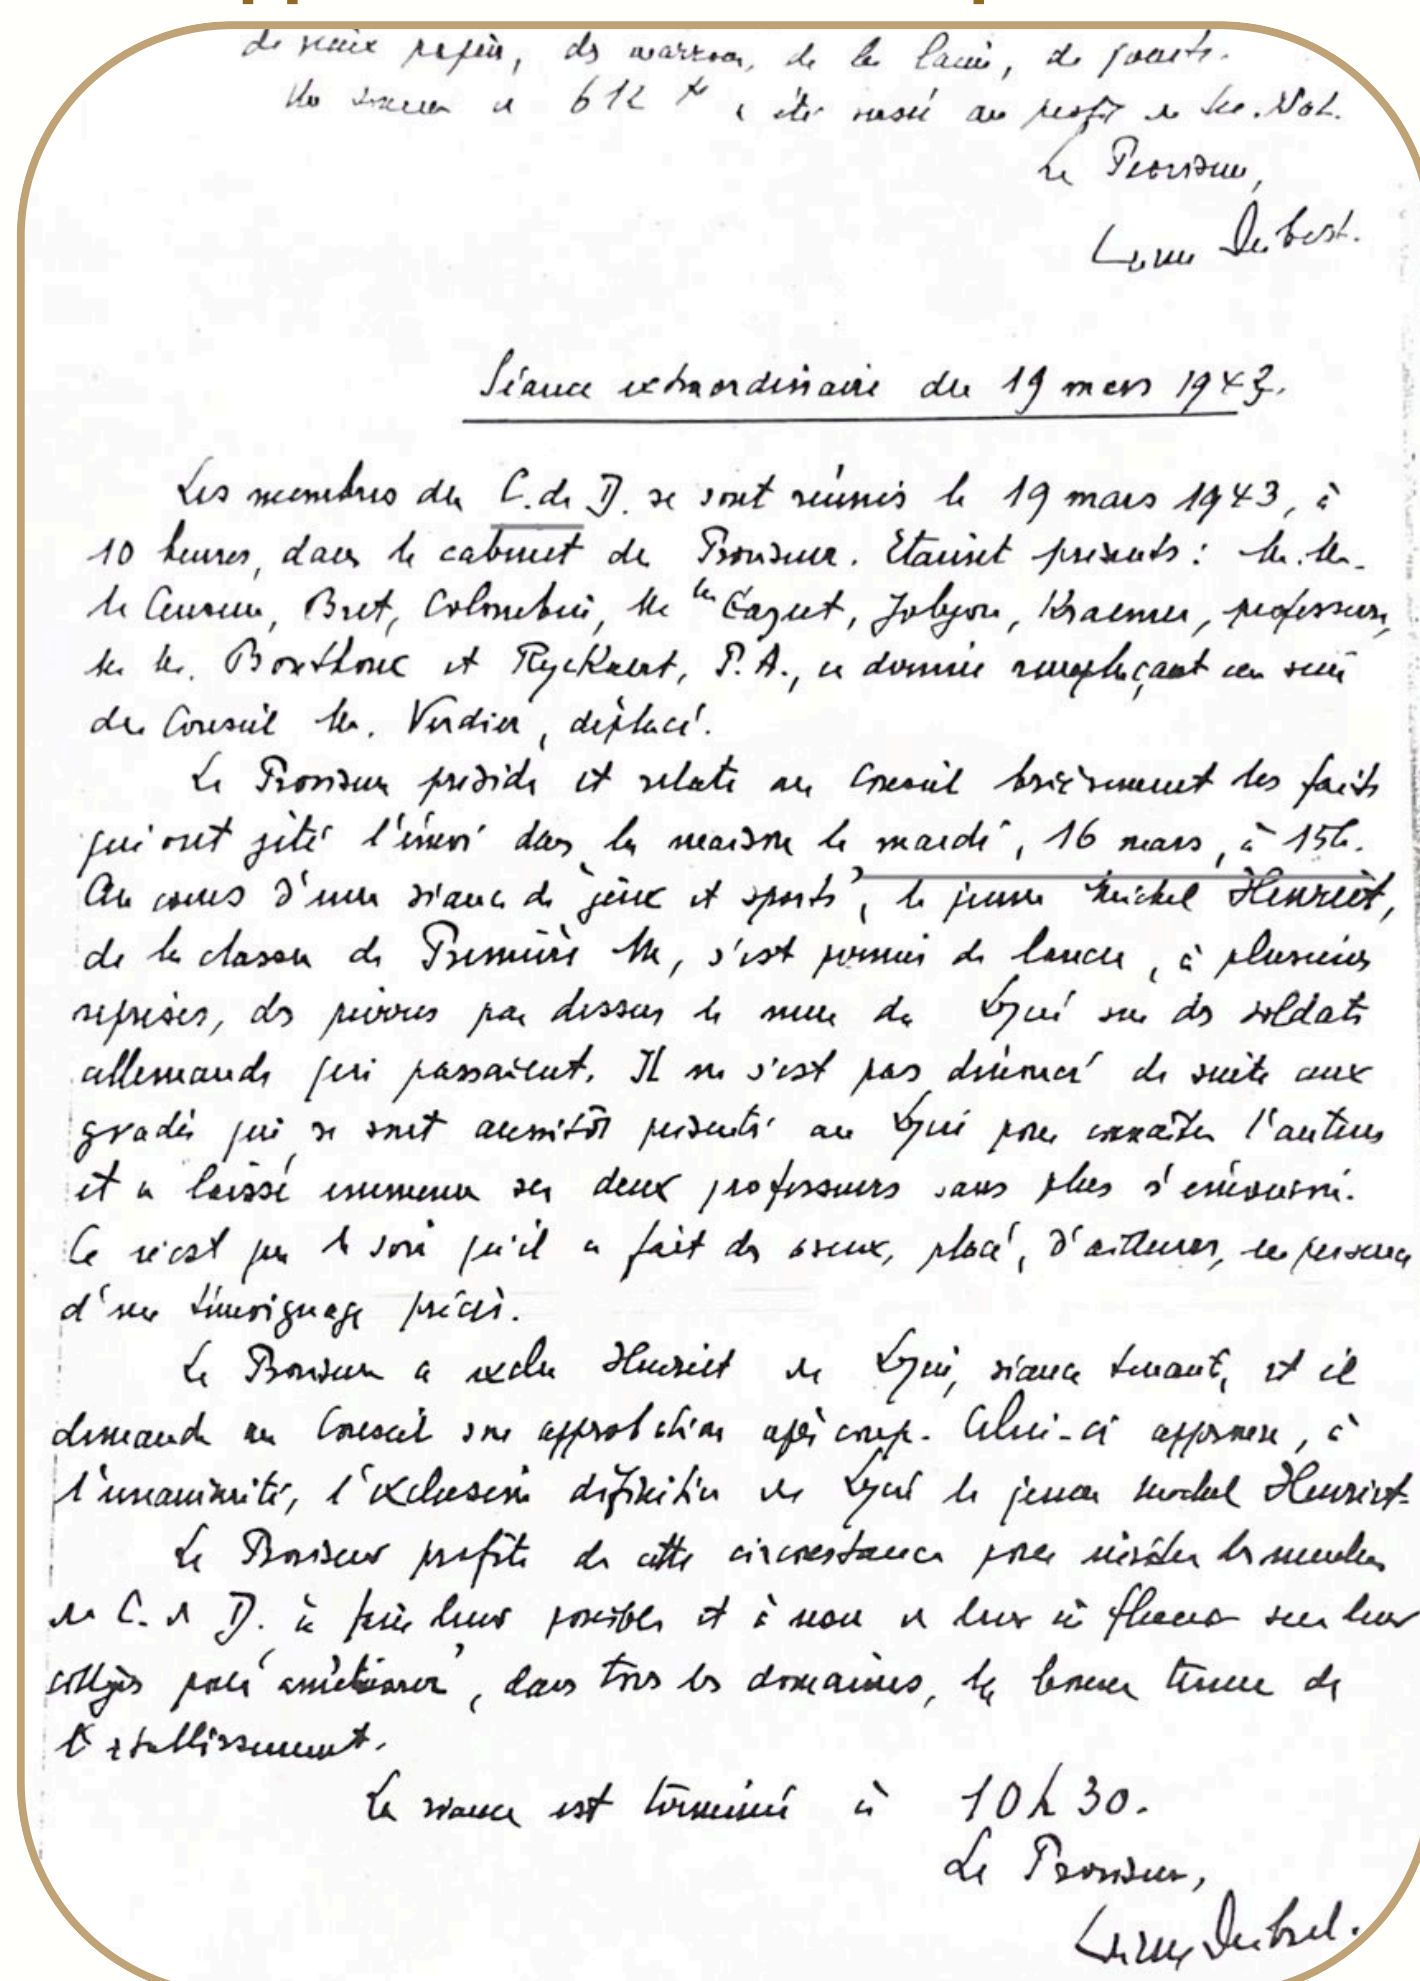 de vieux papiers, de marrons, de la laine, de jouets.
Une somme de 612 f a été versée au profit du Sec. Nat.
Le Proviseur,
Séance extraordinaire du 19 mars 1943.
Les membres du C. de D. se sont réunis le 19 mars 1943, à
10 heures, dans le cabinet du Proviseur. Etaient présents : M.M.
le Censeur, Bret, Colombin, Mlle Cazet, Jolyon, Kraemer, professeurs,
M.M. Bonthoux et Ryckaert, P.A., ce dernier remplaçant au sein
du Conseil M. Verdier, déplacé.
Le Proviseur préside et relate au Conseil brièvement les faits
qui ont jeté l'émoi dans la maison le mardi, 16 mars, à 15h.
Au cours d'une séance de "jeux et sports", le jeune Michel Henriet,
de la classe de Première M, s'est permis de lancer, à plusieurs
reprises, des pierres par dessus le mur du Lycée sur des soldats
allemands qui passaient. Il ne s'est pas dénoncé de suite aux
gradés qui se sont aussitôt présentés au Lycée pour connaître l'auteur
et a laissé emmener ses deux professeurs sans plus s'émouvoir.
Ce n'est que le soir qu'il a fait des aveux, placé, d'ailleurs, en présence
d'un témoignage précis.
Le Proviseur a exclu Henriet du Lycée, séance tenante, et il
demande au Conseil son approbation après coup. Celui-ci approuve, à
l'unanimité, l'exclusion définitive du Lycée le jeune Michel Henriet.
Le Proviseur profite de cette circonstance pour inviter les membres
du C. de D. à faire leur possible et à user de leur influence sur leurs
collègues pour améliorer, dans tous les domaines, la bonne tenue de
l'établissement.
La séance est terminée à 10h30.
Le Proviseur,